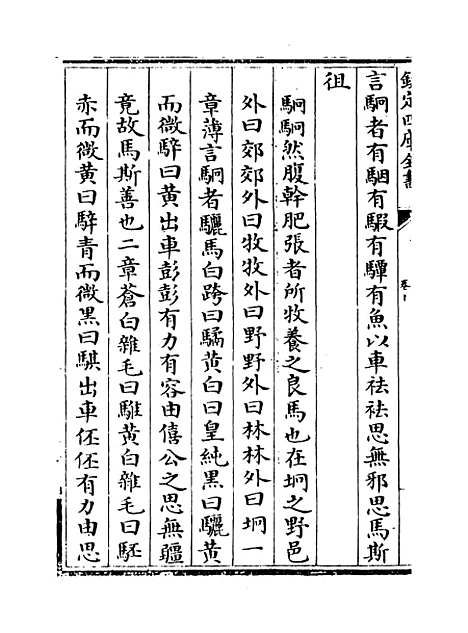 欽定四庫全書
言駉者有駰有騢有驔有魚以車祛祛思無邪思馬斯
徂
駉駉然腹幹肥張者所牧養之良馬也在坰之野邑
外曰郊郊外曰牧牧外曰野野外曰林林外曰坰一
章薄言駉者驪馬白跨曰驈黄白曰皇純黑曰驪黄
而微騂曰黄出車彭彭有力有容由僖公之思無疆
竟故馬斯善也二章蒼白雜毛曰騅黄白雜毛曰駓
赤而微黄曰騂青而微黑曰騏出車伾伾有力由思